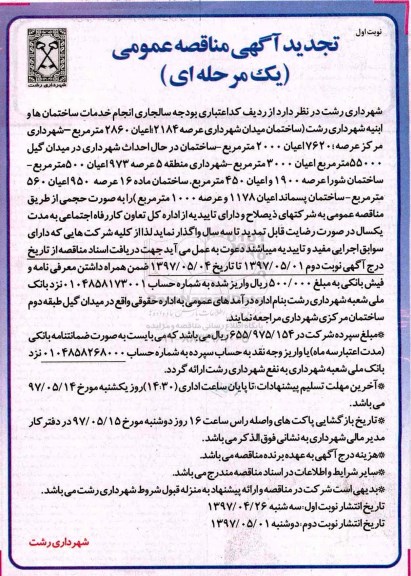 نوبت اول
تجدید آگهی مناقصه عمومی
(یک مرحله ای)
شهرداری رشت
شهرداری رشت در نظر دارد از ردیف کد اعتباری بودجه سالجاری انجام خدمات ساختمان ها و
ابنیه شهرداری رشت (ساختمان میدان شهرداری عرصه ۲۱۸۴:اعیان ۲۸۶۰ مترمربع –شهرداری
مرکز عرصه؛ ۷۶۲۰اعیان ۲۰۰۰ مترمربع -ساختمان در حال احداث شهرداری در میدان گیل
۵۵۰۰۰مترمربع اعیان ۳۰۰۰ مترمربع -شهرداری منطقه ۵ عرصه ۹۷۳ اعیان ۵۰۰ مترمربع-
ساختمان شورا عرصه ۱۹۰۰ و اعیان ۴۵۰ مترمربع. ساختمان ماده ۱۶ عرصه ۹۵۰ اعیان ۵۶۰
مترمربع -ساختمان پسماند اعیان ۱۱۷۸ و عرصه ۱۰۰۰ مترمربع )را به صورت حجمی از طریق
مناقصه عمومی به شرکتهای ذیصلاح و دارای تاییدیه از اداره کل تعاون کار رفاه اجتماعی به مدت
یکسال در صورت رضایت قابل تمدید تا سه سال واگذار نماید لذا از کلیه شرکت هایی که دارای
سوابق اجرایی مفید و تاییدیه میباشند دعوت به عمل می آید جهت دریافت اسناد مناقصه از تاریخ
درج آگهی نوبت دوم ۱۳۹۷/۰۵/۰۱ تا تاریخ ۱۳۹۷/۰۵/۰۴ ضمن همراه داشتن معرفی نامه و
فیش بانکی به مبلغ ۵۰۰/۰۰۰ ریال واریز شده به شماره حساب ۰۱۰۴۸۵۸۱۷۳۰۰۱ نزد بانک
ملی شعبه شهرداری رشت بنام اداره درآمدهای عمومی به اداره حقوقی واقع در میدان گیل طبقه دوم
ساختمان مرکزی شهرداری مراجعه نمایند.
*مبلغ سپرده شرکت در ۶۵۵/۹۷۵/۱۵۴ ریال می باشد که می بایست به صورت ضمانتنامه بانکی
(مدت اعتبار سه ماه) یا واریز وجه نقد به حساب سپرده به شماره حساب ۰۱۰۴۸۵۸۲۶۸۰۰۰ نزد
بانک ملی شعبه شهرداری به نفع شهرداری رشت ارائه گردد.
*آخرین مهلت تسلیم پیشنهادات :تا پایان ساعت اداری (۱۴:۳۰)روز یکشنبه مورخ ۹۷/۰۵/۱۴
می باشد.
*تاریخ بازگشایی پاکت های واصله راس ساعت ۱۶ روز دوشنبه مورخ ۹۷/۰۵/۱۵ در دفتر کار
مدیر مالی شهرداری به نشانی فوق الذکر می باشد.
*هزینه درج آگهی به عهده برنده مناقصه می باشد.
*سایر شرایط و اطلاعات در اسناد مناقصه مندرج می باشد.
*بدیهی است شرکت در مناقصه و ارائه پیشنهاد به منزله قبول شروط شهرداری رشت می باشد.
تاریخ انتشار نوبت اول: سه شنبه ۱۳۹۷/۰۴/۲۶
تاریخ انتشار نوبت دوم: دوشنبه ۱۳۹۷/۰۵/۰۱
شهرداری رشت